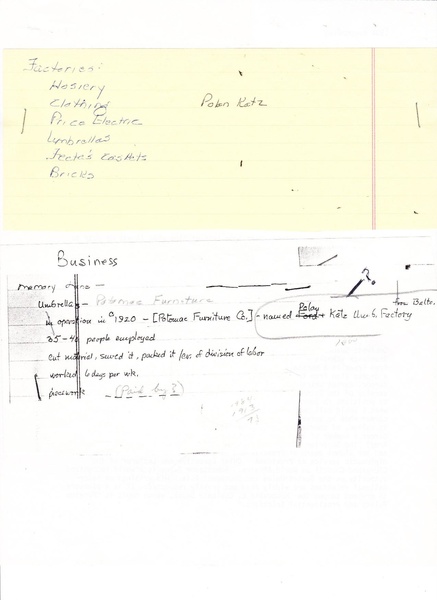 Factories:
Hosiery
Clothing
Polan Katz
Price Electric
Umbrellas
Bricks
Business
?
memory
from Balto.
Umbrella - Potomac Furniture
in operation in c 1920 - [Potomac Furniture Co.] - named Polay Ford + Katz Umb. Factory
35-40 people employed
cut material, sewed it, packed it / division of labor
worked 6 days per wk.
piecework (Paid by?)